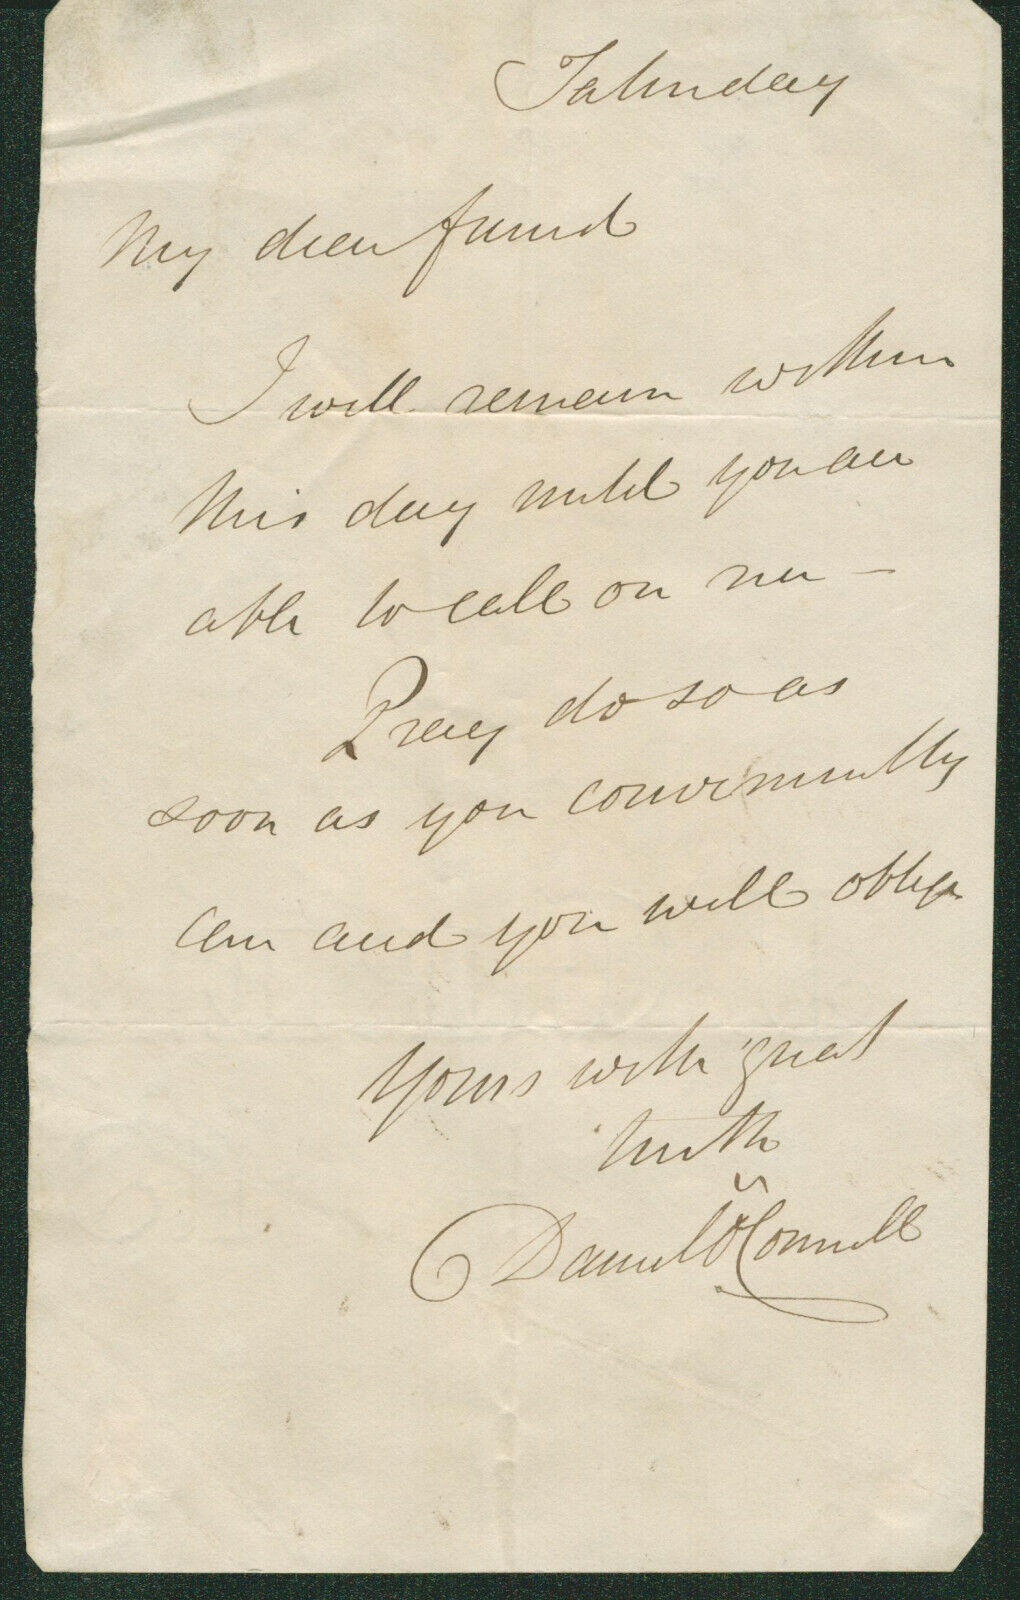 Saturday
My dear friend
I will remain within
this day until you are
able to call on me —
Pray do so as
soon as you conveniently
can and you will oblige
Yours with great
truth
Daniel O'Connell